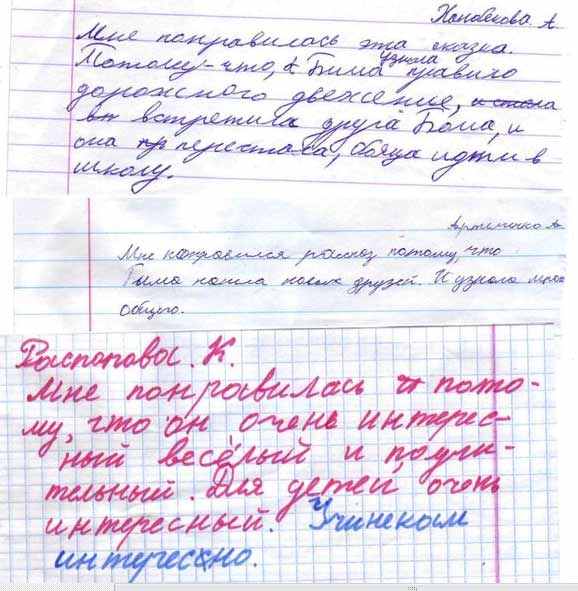 Ханбекова А.
Мне понравилась эта сказка.
Потому-что, Бима узнала правило
дорожного движение, и стала
вт встретила друга Бома, и
она пр перестала, бояца идти в
школу.
Артеменко А.
Мне понравился расказ потому, что
Быма нашла новых друзей. И узнала мног
общего.
Распопова. К.
Мне понравилась и пото-
му, что он очень интерес-
ный весёлый и поучи-
тельный. Для детей, очень
интересный. Учинекам
интересно.